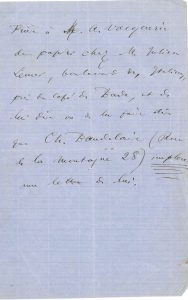 Prière à M. A. Vacquerie
de passer chez M. Julien
Lemer, boulevard des Italiens,
près le café de Bade, et de
lui dire ou de lui faire dire
que Ch. Baudelaire (rue
de la Montagne 28) implore
une lettre de lui.